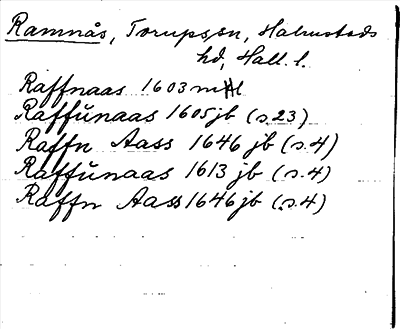 Ramnås, Torups sn, Halmstads
hd, Hall. l.
Raffnaas 1603 mtl
Raffŭnaas 1605 jb (s. 23)
Raffn Aass 1646 jb (s. 4)
Raffŭnaas 1613 jb (s. 4)
Raffn Aass 1646 jb (s. 4)